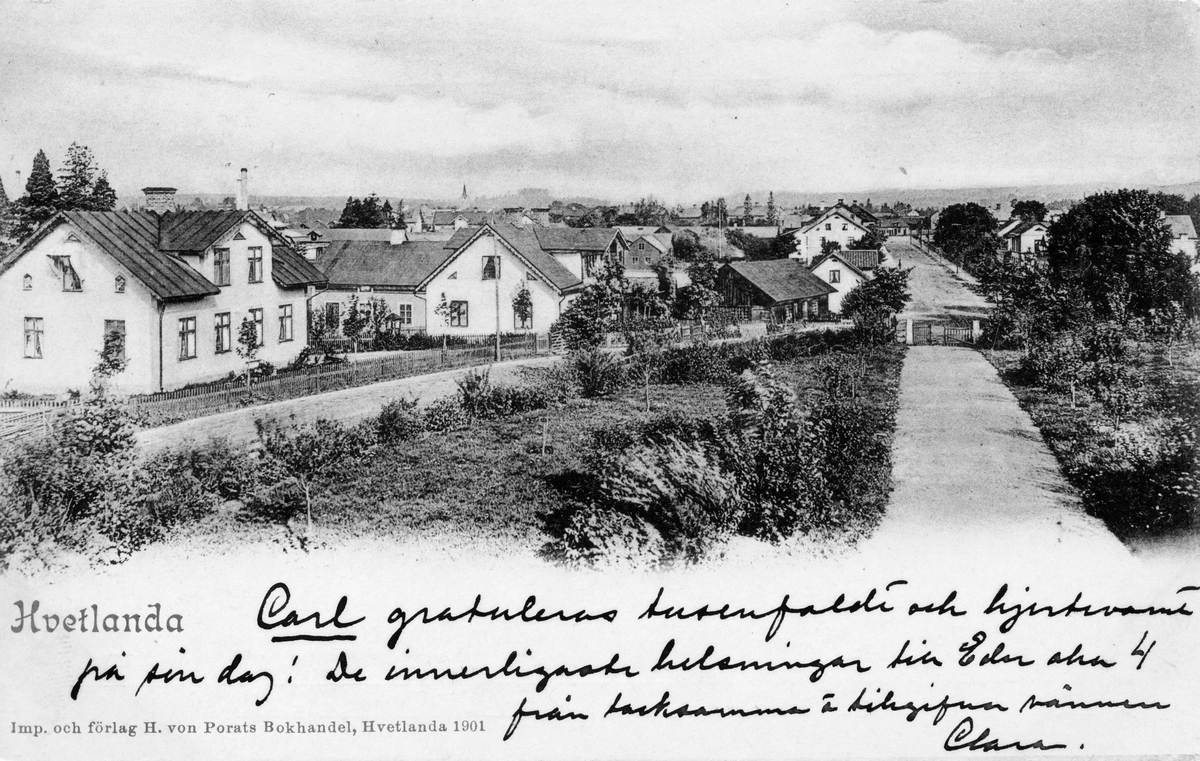 Hvetlanda
Carl gratuleras tusenfaldt och hjertevarmt
på sin dag! De innerligaste helsningar till Eder alla 4
från tacksamma & tillgifna vännen
Clara.
Imp. och förlag H. von Porats Bokhandel, Hvetlanda 1901